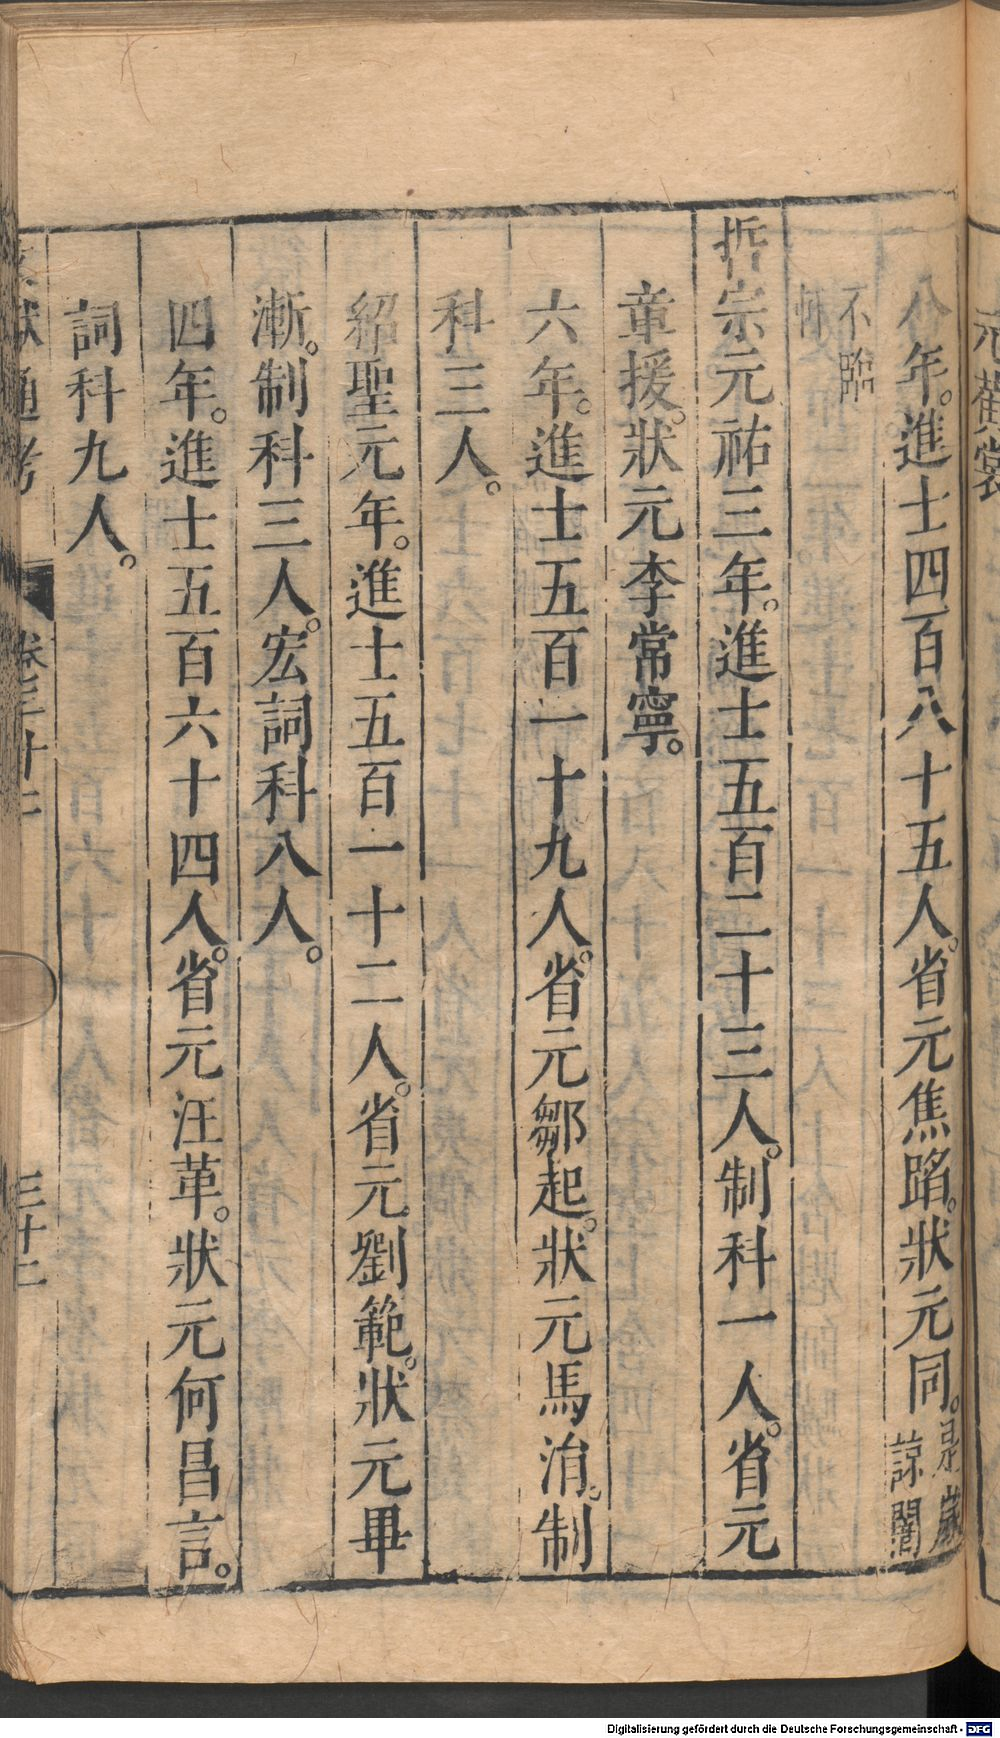 八年。進士四百八十五人。省元焦蹈。狀元同。是歲諒闇
不臨軒
哲宗元祐三年。進士五百二十三人。制科一人。省元
章援。狀元李常寧。
六年。進士五百一十九人。省元鄒起。狀元馬涓。制
科三人。
紹聖元年。進士五百一十二人。省元劉範。狀元畢
漸。制科三人。宏詞科八人。
四年。進士五百六十四人。省元汪革。狀元何昌言。
詞科九人。
文獻通考 卷三十二 三十二
Digitalisierung gefördert durch die Deutsche Forschungsgemeinschaft - DFG